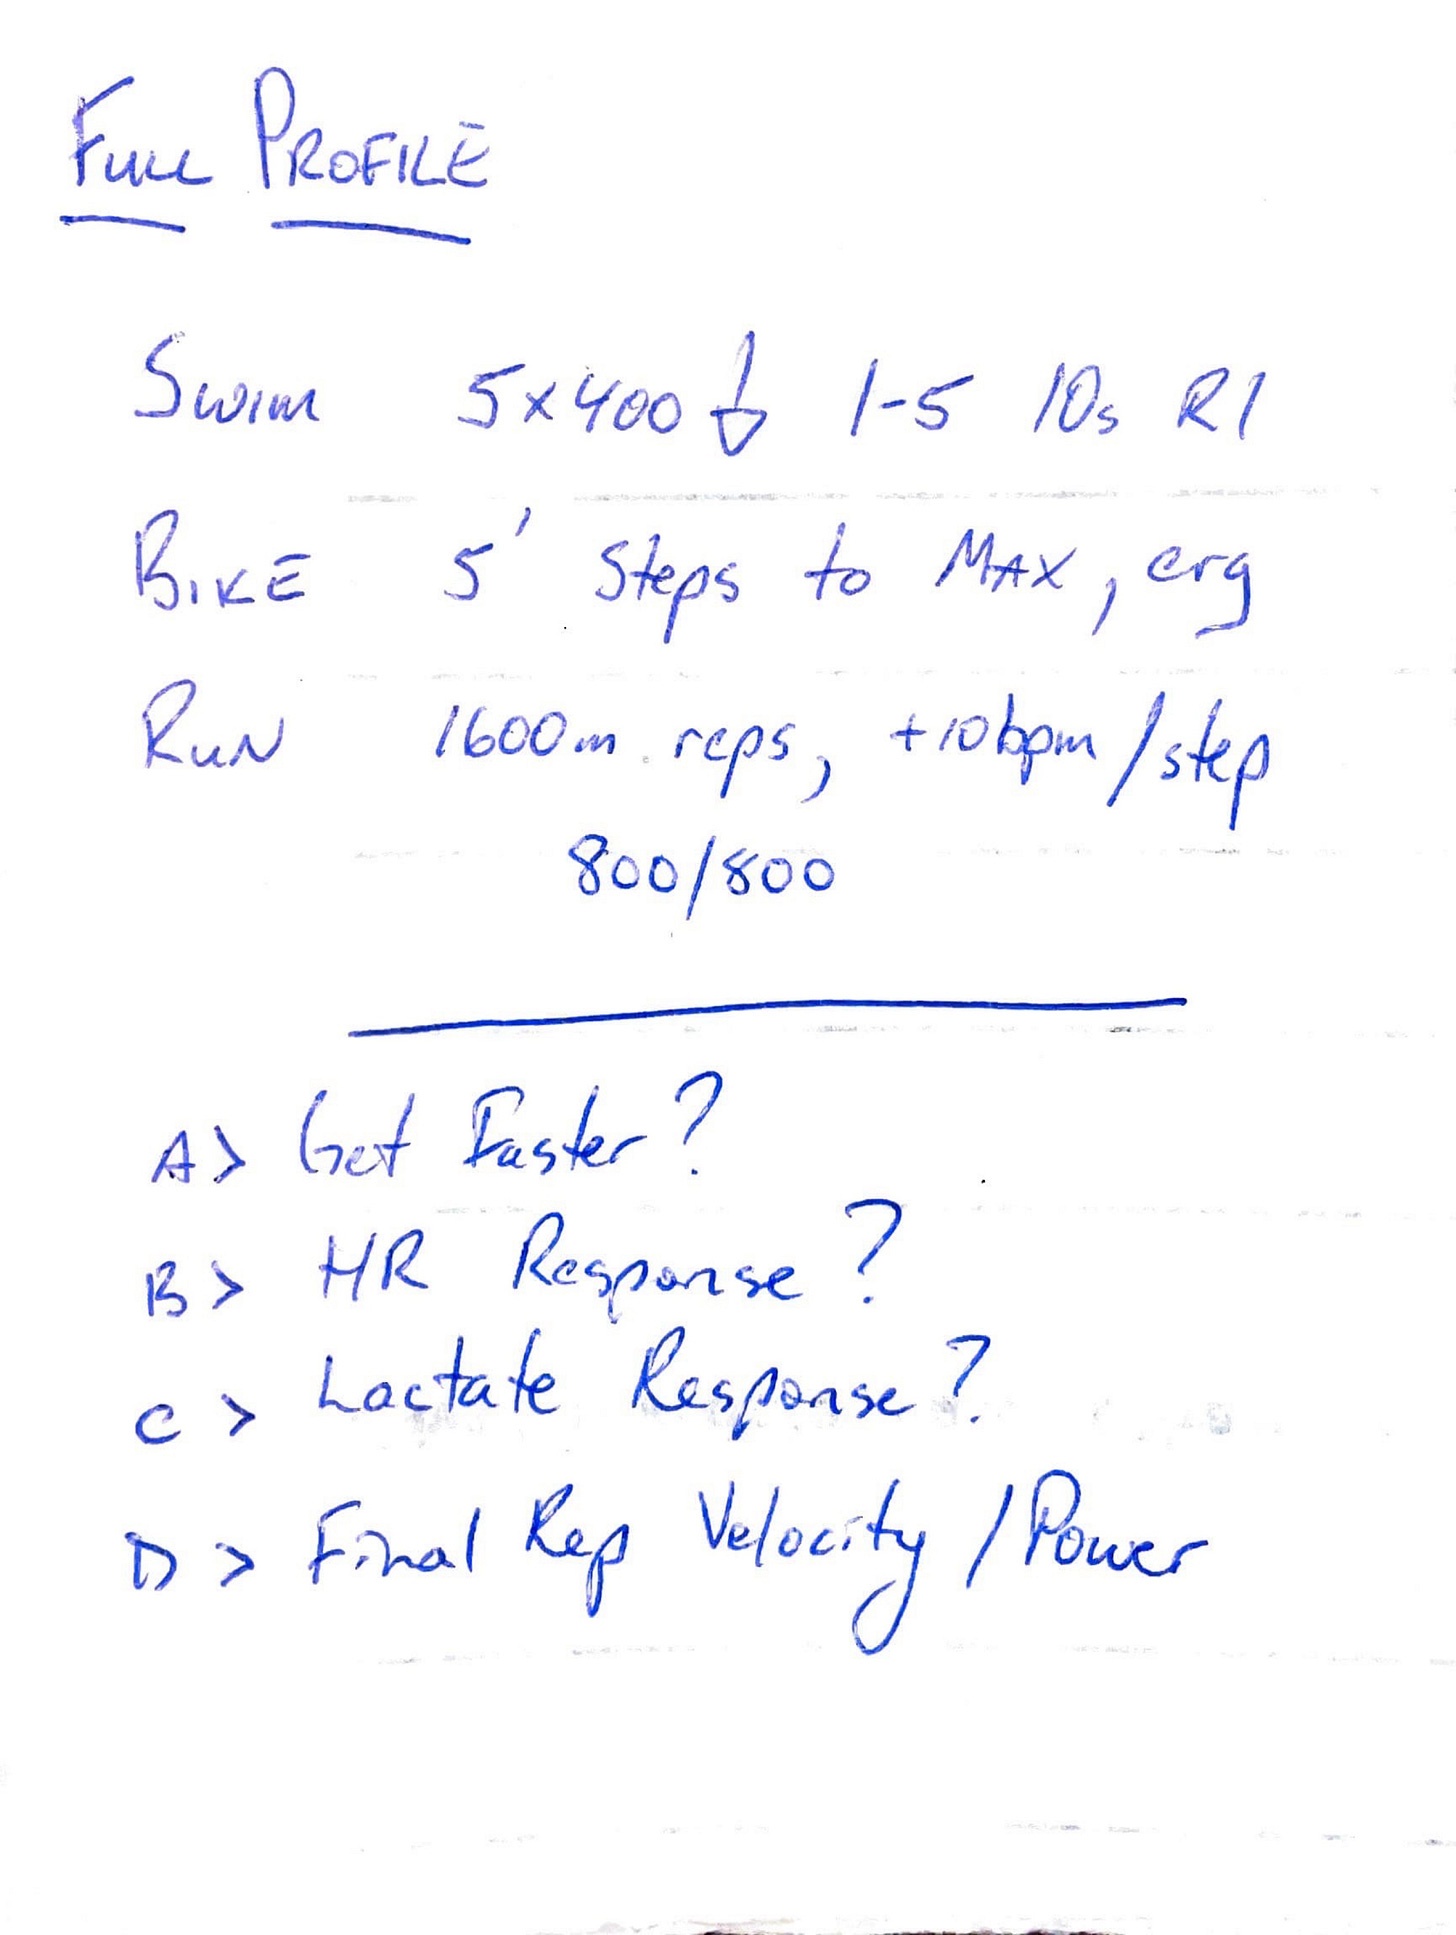 FULL PROFILE
SWIM 5x400 ↓ 1-5 10s RI
BIKE 5' Steps to MAX, erg
RUN 1600m reps, +10bpm/step
800/800
A> Get Faster?
B> HR Response?
C> Lactate Response?
D> Final Rep Velocity/Power